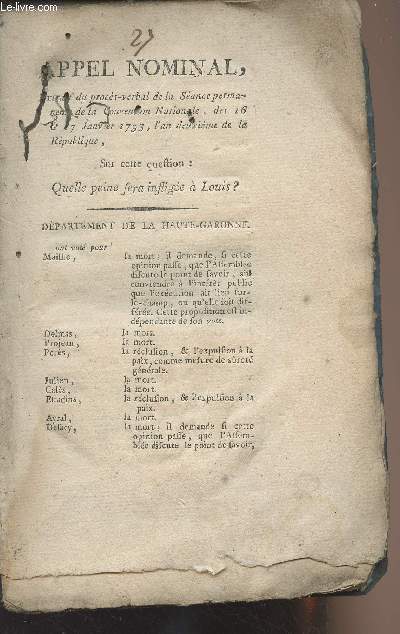 27
APPEL NOMINAL,
du procès-verbal de la Séance perma-
de la Convention Nationale, des 16
& 17 Janvier 1793, l'an deuxième de la
République,
Sur cette question :
Quelle peine sera infligée à Louis ?
DÉPARTEMENT DE LA HAUTE-GARONNE.
ont voté pour
Mailhe, la mort ; il demande, si cette
opinion passe, que l'Assemblée
discute le point de savoir, s'il
conviendra à l'intérêt public
que l'exécution ait lieu sur-
le-champ, ou qu'elle soit dif-
férée. Cette proposition est in-
dépendante de son vote.
Delmas, la mort.
Projean, la mort.
Perès, la réclusion, & l'expulsion à la
paix, comme mesure de sûreté
générale.
Julien, la mort.
Calès, la mort.
Estadins, la réclusion, & l'expulsion à la
paix.
Ayral, la mort.
Desacy, la mort ; il demande si cette
opinion passe, que l'Assem-
blée discute le point de savoir,